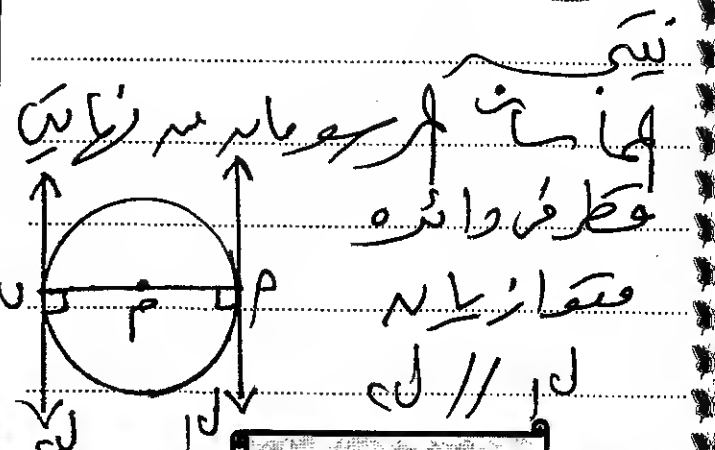 نتيجة
المماسان المرسومان من نهايتى
قطر فى دائره
متوازيان
ل١ // ل٢
ب م م
ل٢ ل١